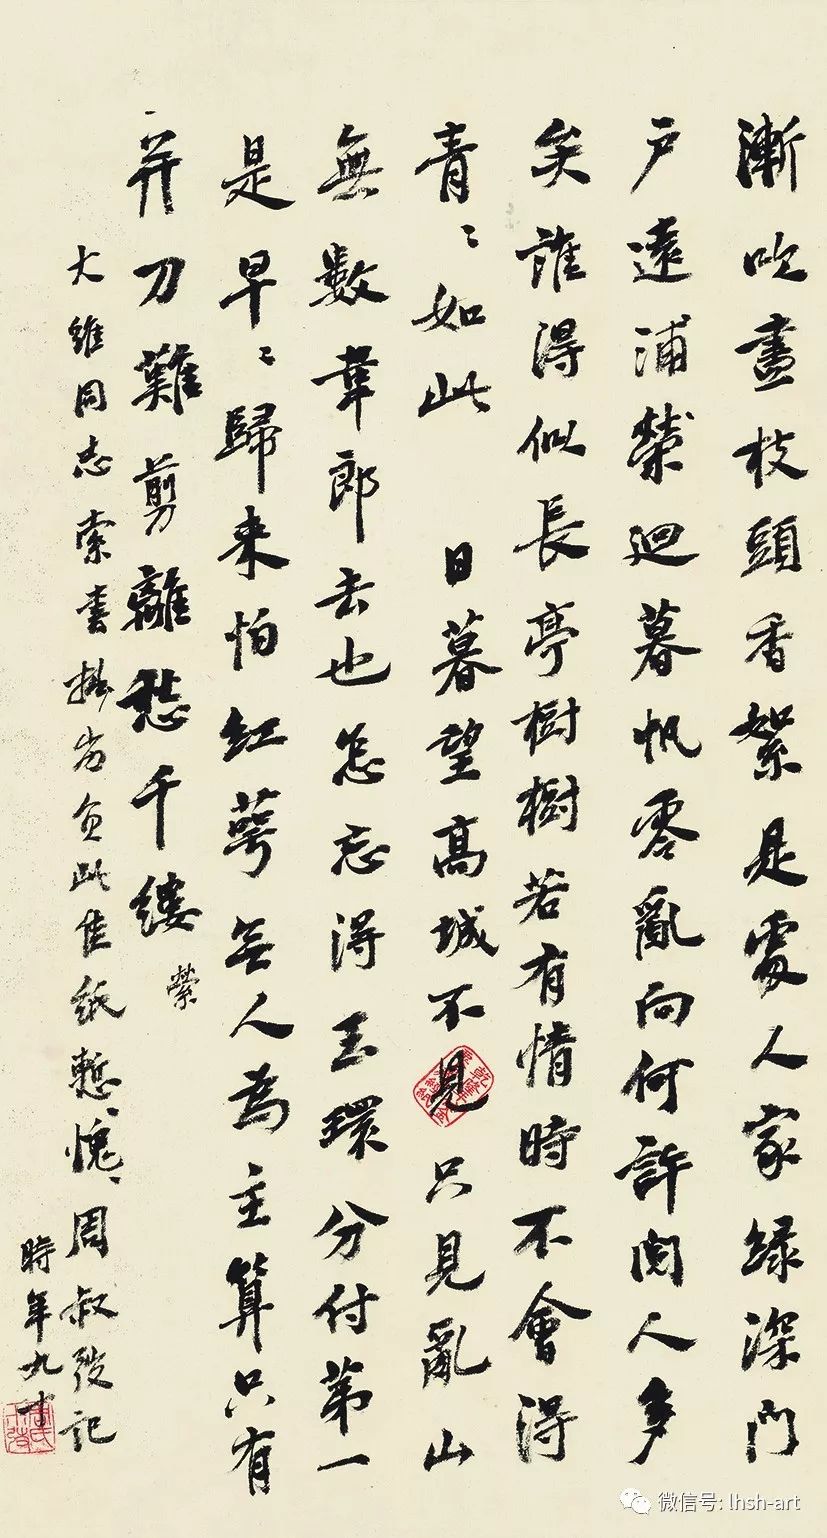 漸吹盡枝頭香絮是處人家綠深門
戶遠浦縈迴暮帆零亂向何許閱人多
矣誰得似長亭樹樹若有情時不會得
青〻如此　日暮望高城不見只見亂山
無數韋郎去也怎忘得玉環分付第一
是早〻歸來怕紅萼無人為主算只有
并刀難剪離愁千縷
縈
大維同志索書拙劣負此佳紙慙〻愧〻周叔弢記
時年九十
微信号: lhsh-art